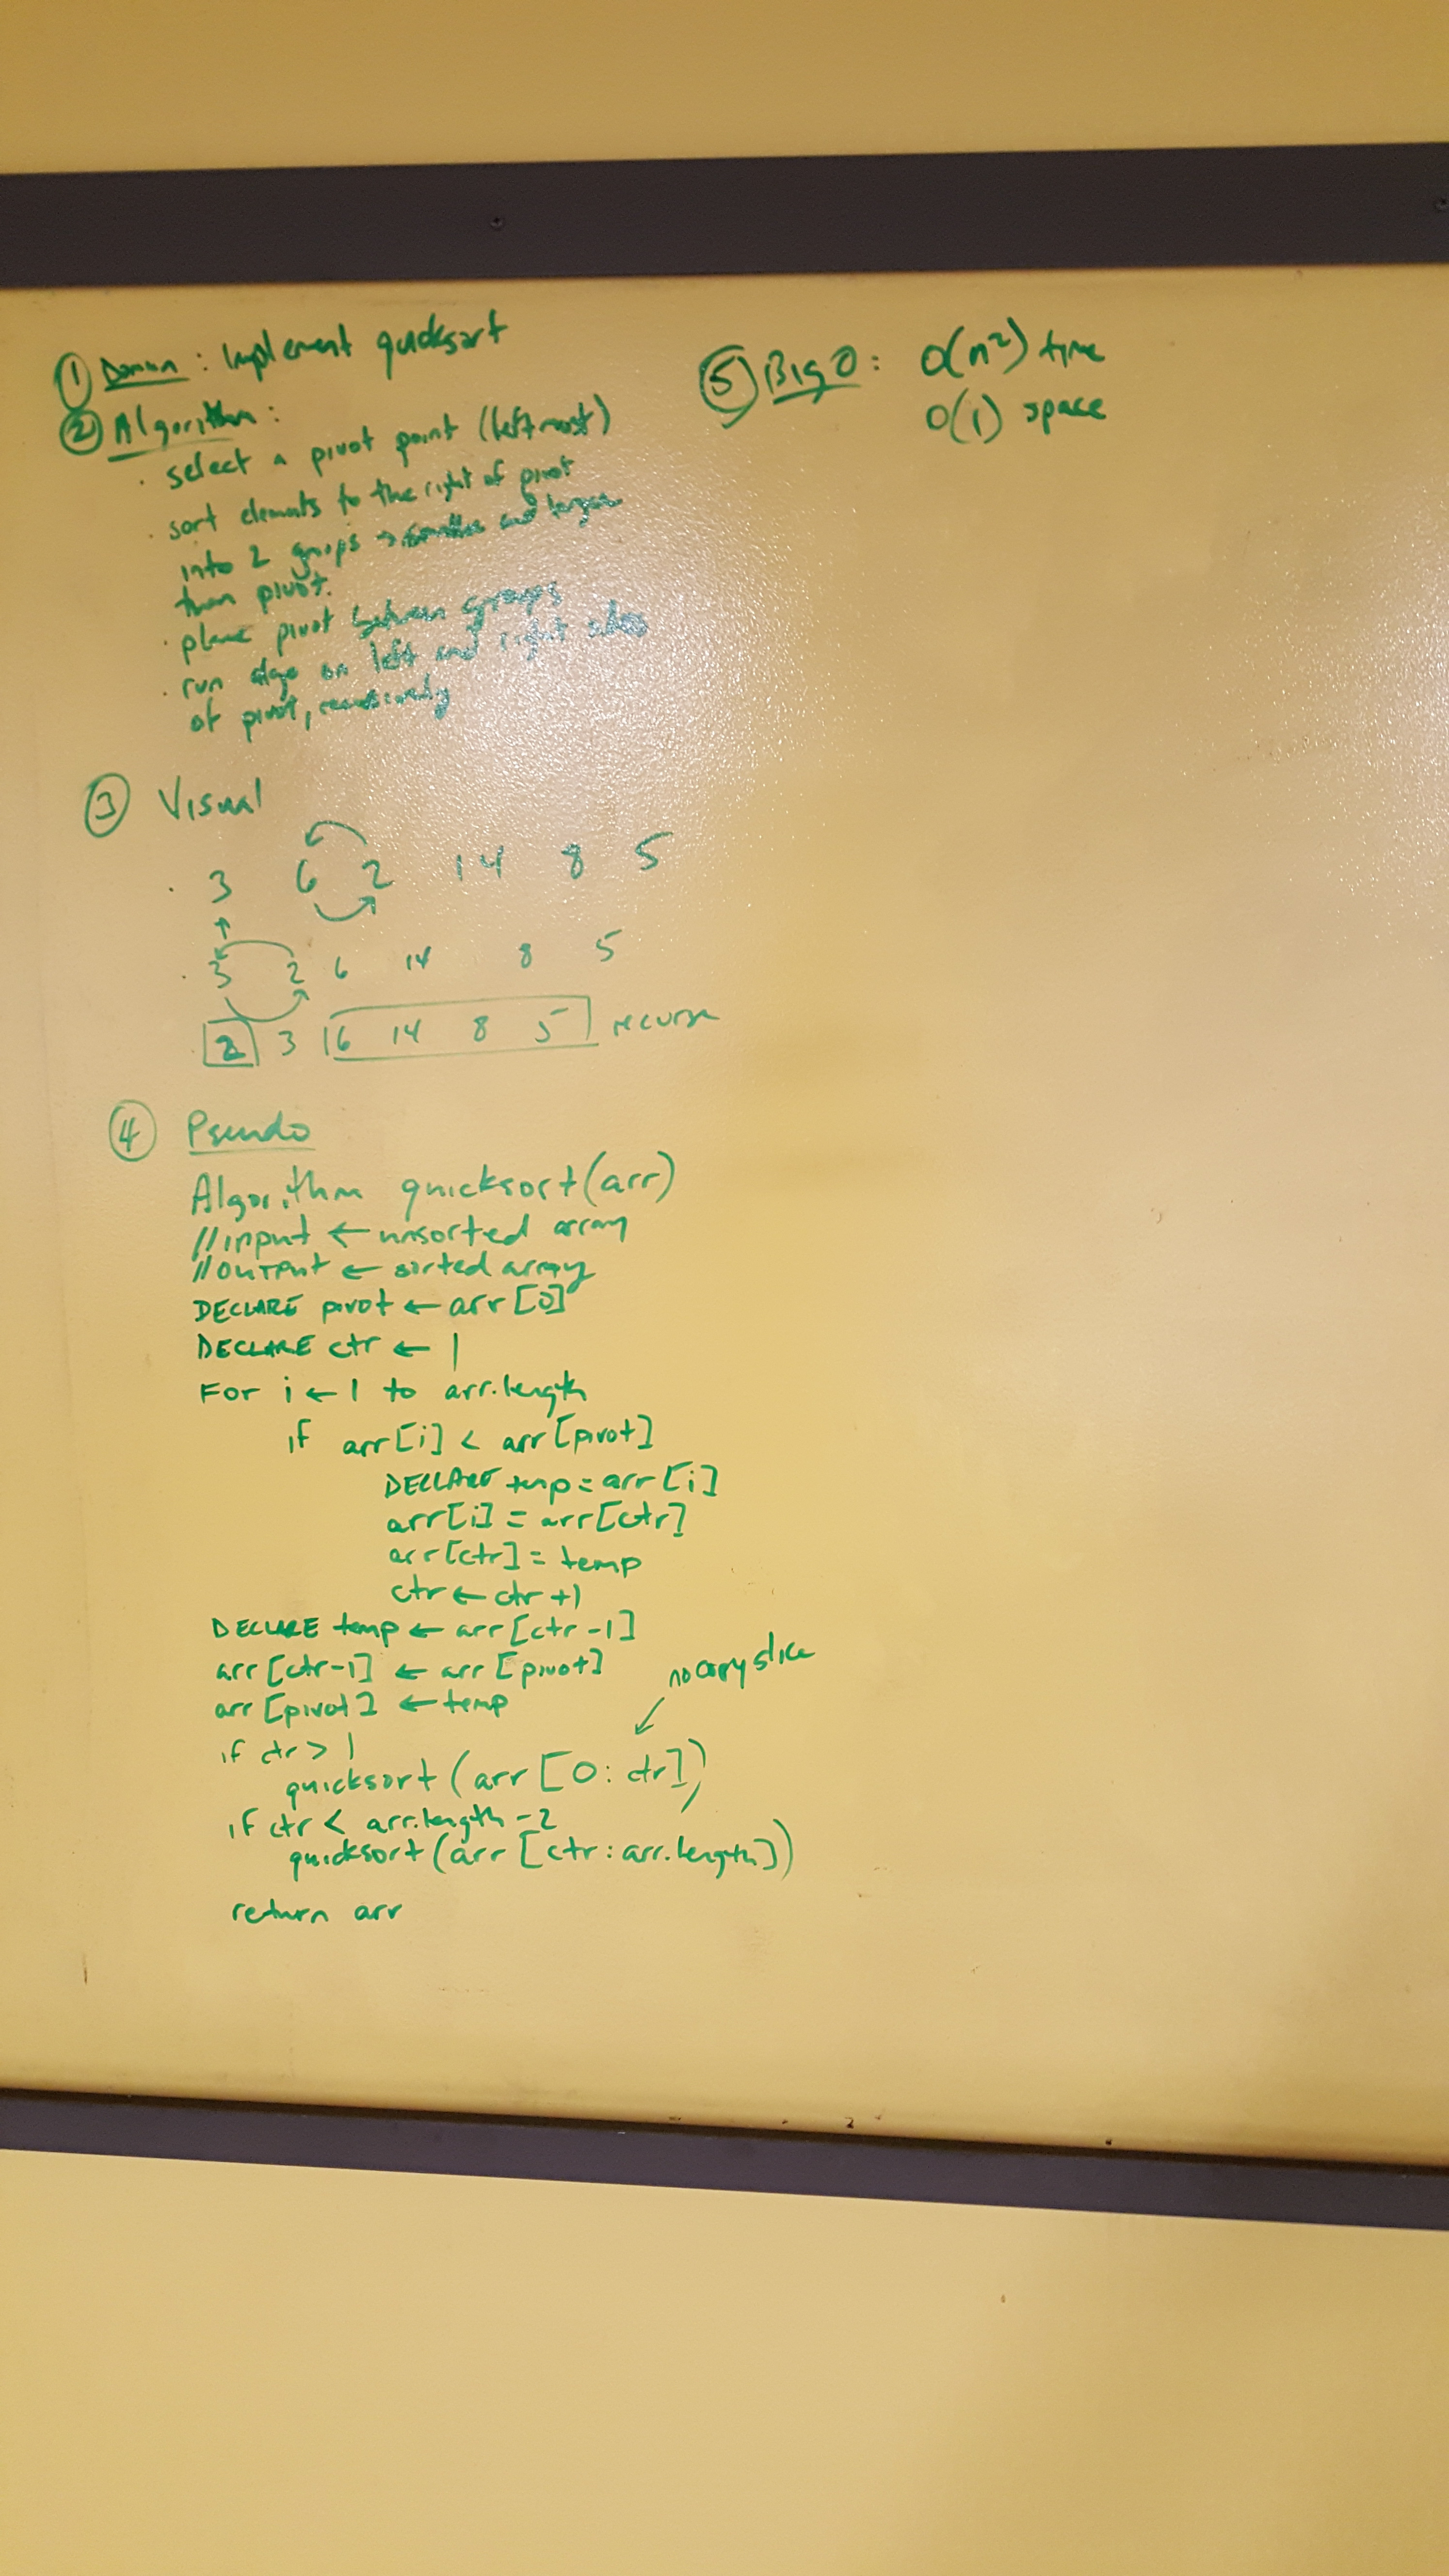 ① Domain : Implement quicksort
② Algorithm :
· select a pivot point (leftmost)
· sort elements to the right of pivot
into 2 groups → smaller and larger
than pivot.
· place pivot between groups
· run algo on left and right sides
of pivot, recursively
③ Visual
· 3 6 2 14 8 5
· 3 2 6 14 8 5
2 3 6 14 8 5 recurse
④ Pseudo
Algorithm quicksort(arr)
//input ← unsorted array
//OUTPUT ← sorted array
DECLARE pivot ← arr[0]
DECLARE ctr ← 1
For i ← 1 to arr.length
if arr[i] < arr[pivot]
DECLARE temp = arr[i]
arr[i] = arr[ctr]
arr[ctr] = temp
ctr ← ctr +1
DECLARE temp ← arr[ctr-1]
arr[ctr-1] ← arr[pivot]
arr[pivot] ← temp
no copy slice
if ctr > 1
quicksort(arr[0:ctr])
if ctr < arr.length -2
quicksort(arr[ctr:arr.length])
return arr
⑤ Big O : O(n²) time
O(1) space